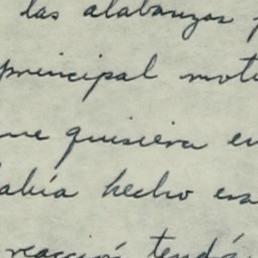 las alabanzas
principal mot
que quisiera e
había hecho era
reacción tendá